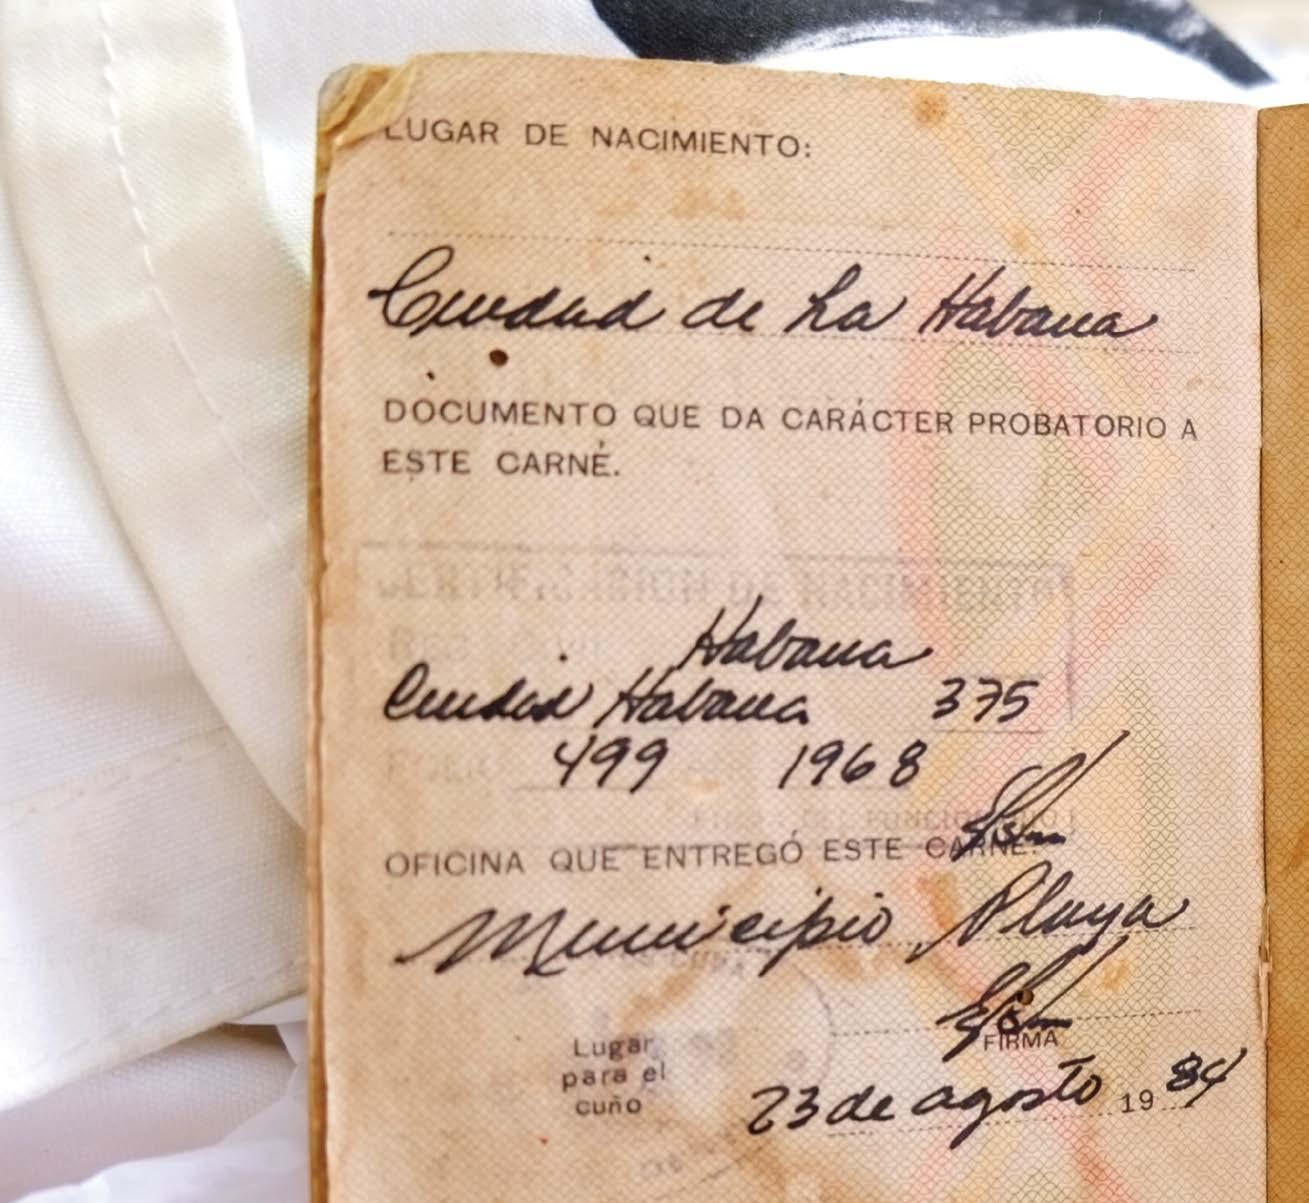 LUGAR DE NACIMIENTO:
Ciudad de La Habana
DOCUMENTO QUE DA CARÁCTER PROBATORIO A
ESTE CARNÉ.
CERTIFICACION DE NACIMIENTO
Habana
Ciudad Habana 375
499 1968
OFICINA QUE ENTREGÓ ESTE CARNÉ:
Municipio Playa
FIRMA
Lugar
para el
cuño
23 de agosto 1984